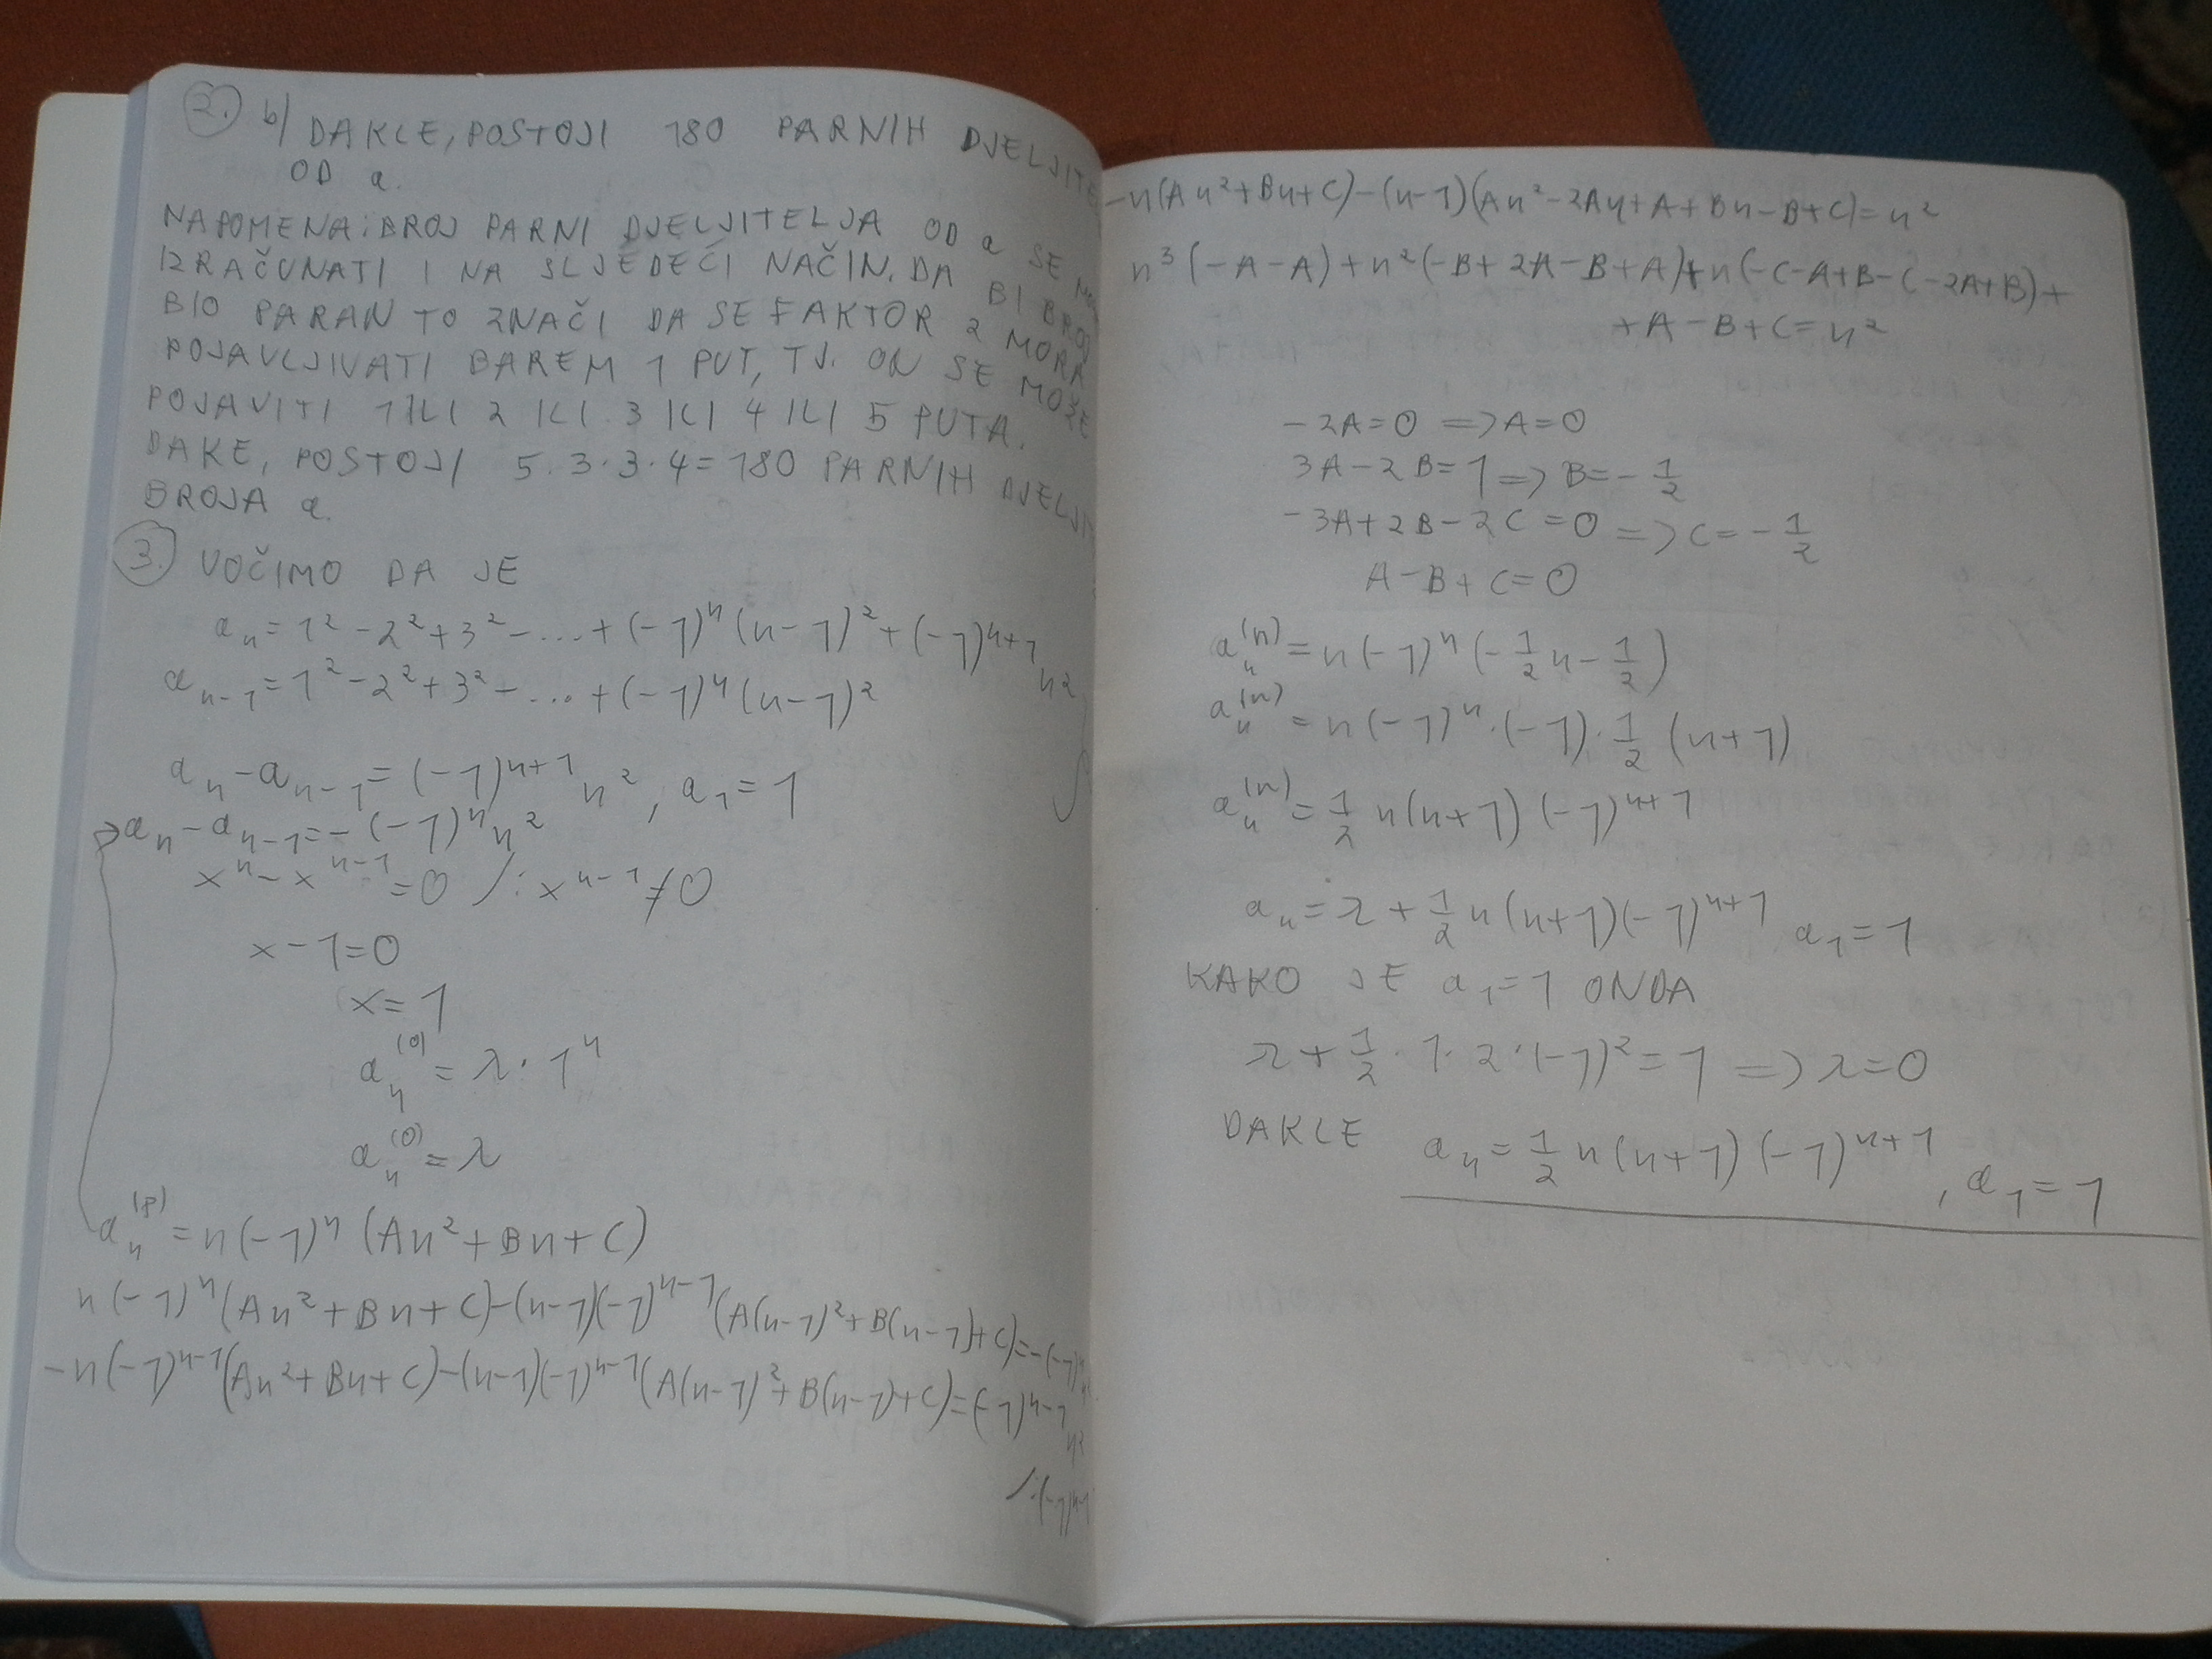 2. b) DAKLE, POSTOJI 180 PARNIH
OD a.
NAPOMENA: BROJ PARNI DJELJITELJA OD a SE
IZRAČUNATI I NA SLJEDEĆI NAČIN. DA BI BROJ
BIO PARAN TO ZNAČI DA SE FAKTOR 2 MORA
POJAVLJIVATI BAREM 1 PUT, TJ. ON SE MOŽE
POJAVITI 1 ILI 2 ILI 3 ILI 4 ILI 5 PUTA.
DAKE, POSTOJI 5·3·3·4=180 PARNIH
BROJA a.
3. UOČIMO DA JE
a_n = 1² - 2² + 3² - ... + (-1)^n (n-1)² + (-1)^{n+1} n²
a_{n-1} = 1² - 2² + 3² - ... + (-1)^n (n-1)²
a_n - a_{n-1} = (-1)^{n+1} n², a_1 = 1
→ a_n - a_{n-1} = -(-1)^n n²
x^n - x^{n-1} = 0 /: x^{n-1} ≠ 0
x - 1 = 0
x = 1
a_n^{(0)} = λ · 1^n
a_n^{(0)} = λ
a_n^{(p)} = n(-1)^n (An² + Bn + C)
n(-1)^n (An² + Bn + C) - (n-1)(-1)^{n-1} (A(n-1)² + B(n-1) + C) = -(-1)^n
-n(-1)^{n-1} (An² + Bn + C) - (n-1)(-1)^{n-1} (A(n-1)² + B(n-1) + C) = (-1)^{n-1} n²
/:(-1)^{n-1}
-n(An² + Bn + C) - (n-1)(An² - 2An + A + Bn - B + C) = n²
n³(-A-A) + n²(-B + 2A - B + A) + n(-C - A + B - C - 2A + B) +
+ A - B + C = n²
-2A = 0 => A = 0
3A - 2B = 1 => B = -1/2
-3A + 2B - 2C = 0 => C = -1/2
A - B + C = 0
a_n^{(n)} = n(-1)^n (-1/2 n - 1/2)
a_n^{(n)} = n(-1)^n · (-1) · 1/2 (n+1)
a_n^{(n)} = 1/2 n(n+1) (-1)^{n+1}
a_n = λ + 1/2 n(n+1)(-1)^{n+1} a_1 = 1
KAKO JE a_1 = 1 ONDA
λ + 1/2 · 1 · 2 · (-1)² = 1 => λ = 0
DAKLE a_n = 1/2 n(n+1) (-1)^{n+1}, a_1 = 1